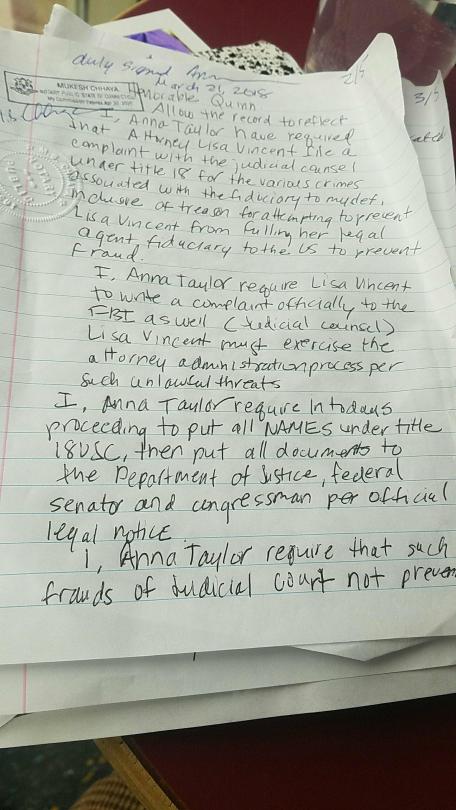 duly signed
2/5
March 21, 2018
MUKESH CHHAYA
NOTARY PUBLIC STATE OF CONNECTICUT
My Commission Expires Apr. 30,
Honorable Quinn
3/5
Allow the record to reflect
I, Anna Taylor have required
that Attorney Lisa Vincent file a
complaint with the judicial counsel
under title 18 for the various crimes
associated with the fiduciary to my def.
inclusive of treason for attempting to prevent
Lisa Vincent from fulling her legal
agent fiduciary to the US to prevent
fraud.
I, Anna Taylor require Lisa Vincent
to write a complaint officially to the
FBI as well (Judicial counsel)
Lisa Vincent must exercise the
attorney administration process per
such unlawful threats
I, Anna Taylor require In todays
proceeding to put all NAMES under title
18USC, then put all documents to
the Department of Justice, federal
senator and congressman per official
legal notice.
I, Anna Taylor require that such
frauds of Judicial Court not preven